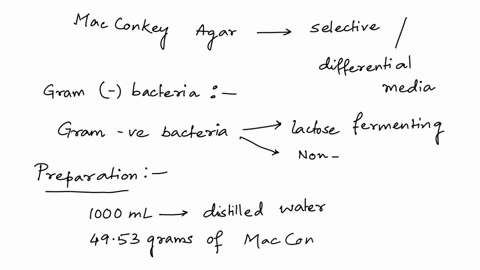 Mac Conkey Agar → selective /
differential
media
Gram (-) bacteria :-
Gram -ve bacteria → lactose fermenting
→ Non-
Preparation :-
1000 mL → distilled water
49.53 grams of Mac Con